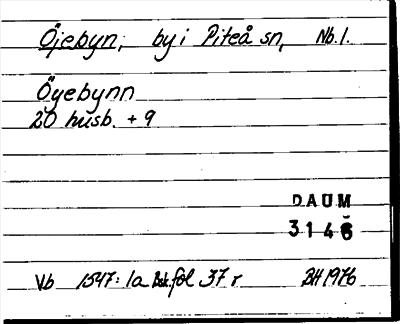 Öjebyn, by i Piteå sn, Nb. l.
Öyebynn
20 husb. + 9
DAUM
3146
Vb 1547: 1a Bsk. fol 37 r BH 1976